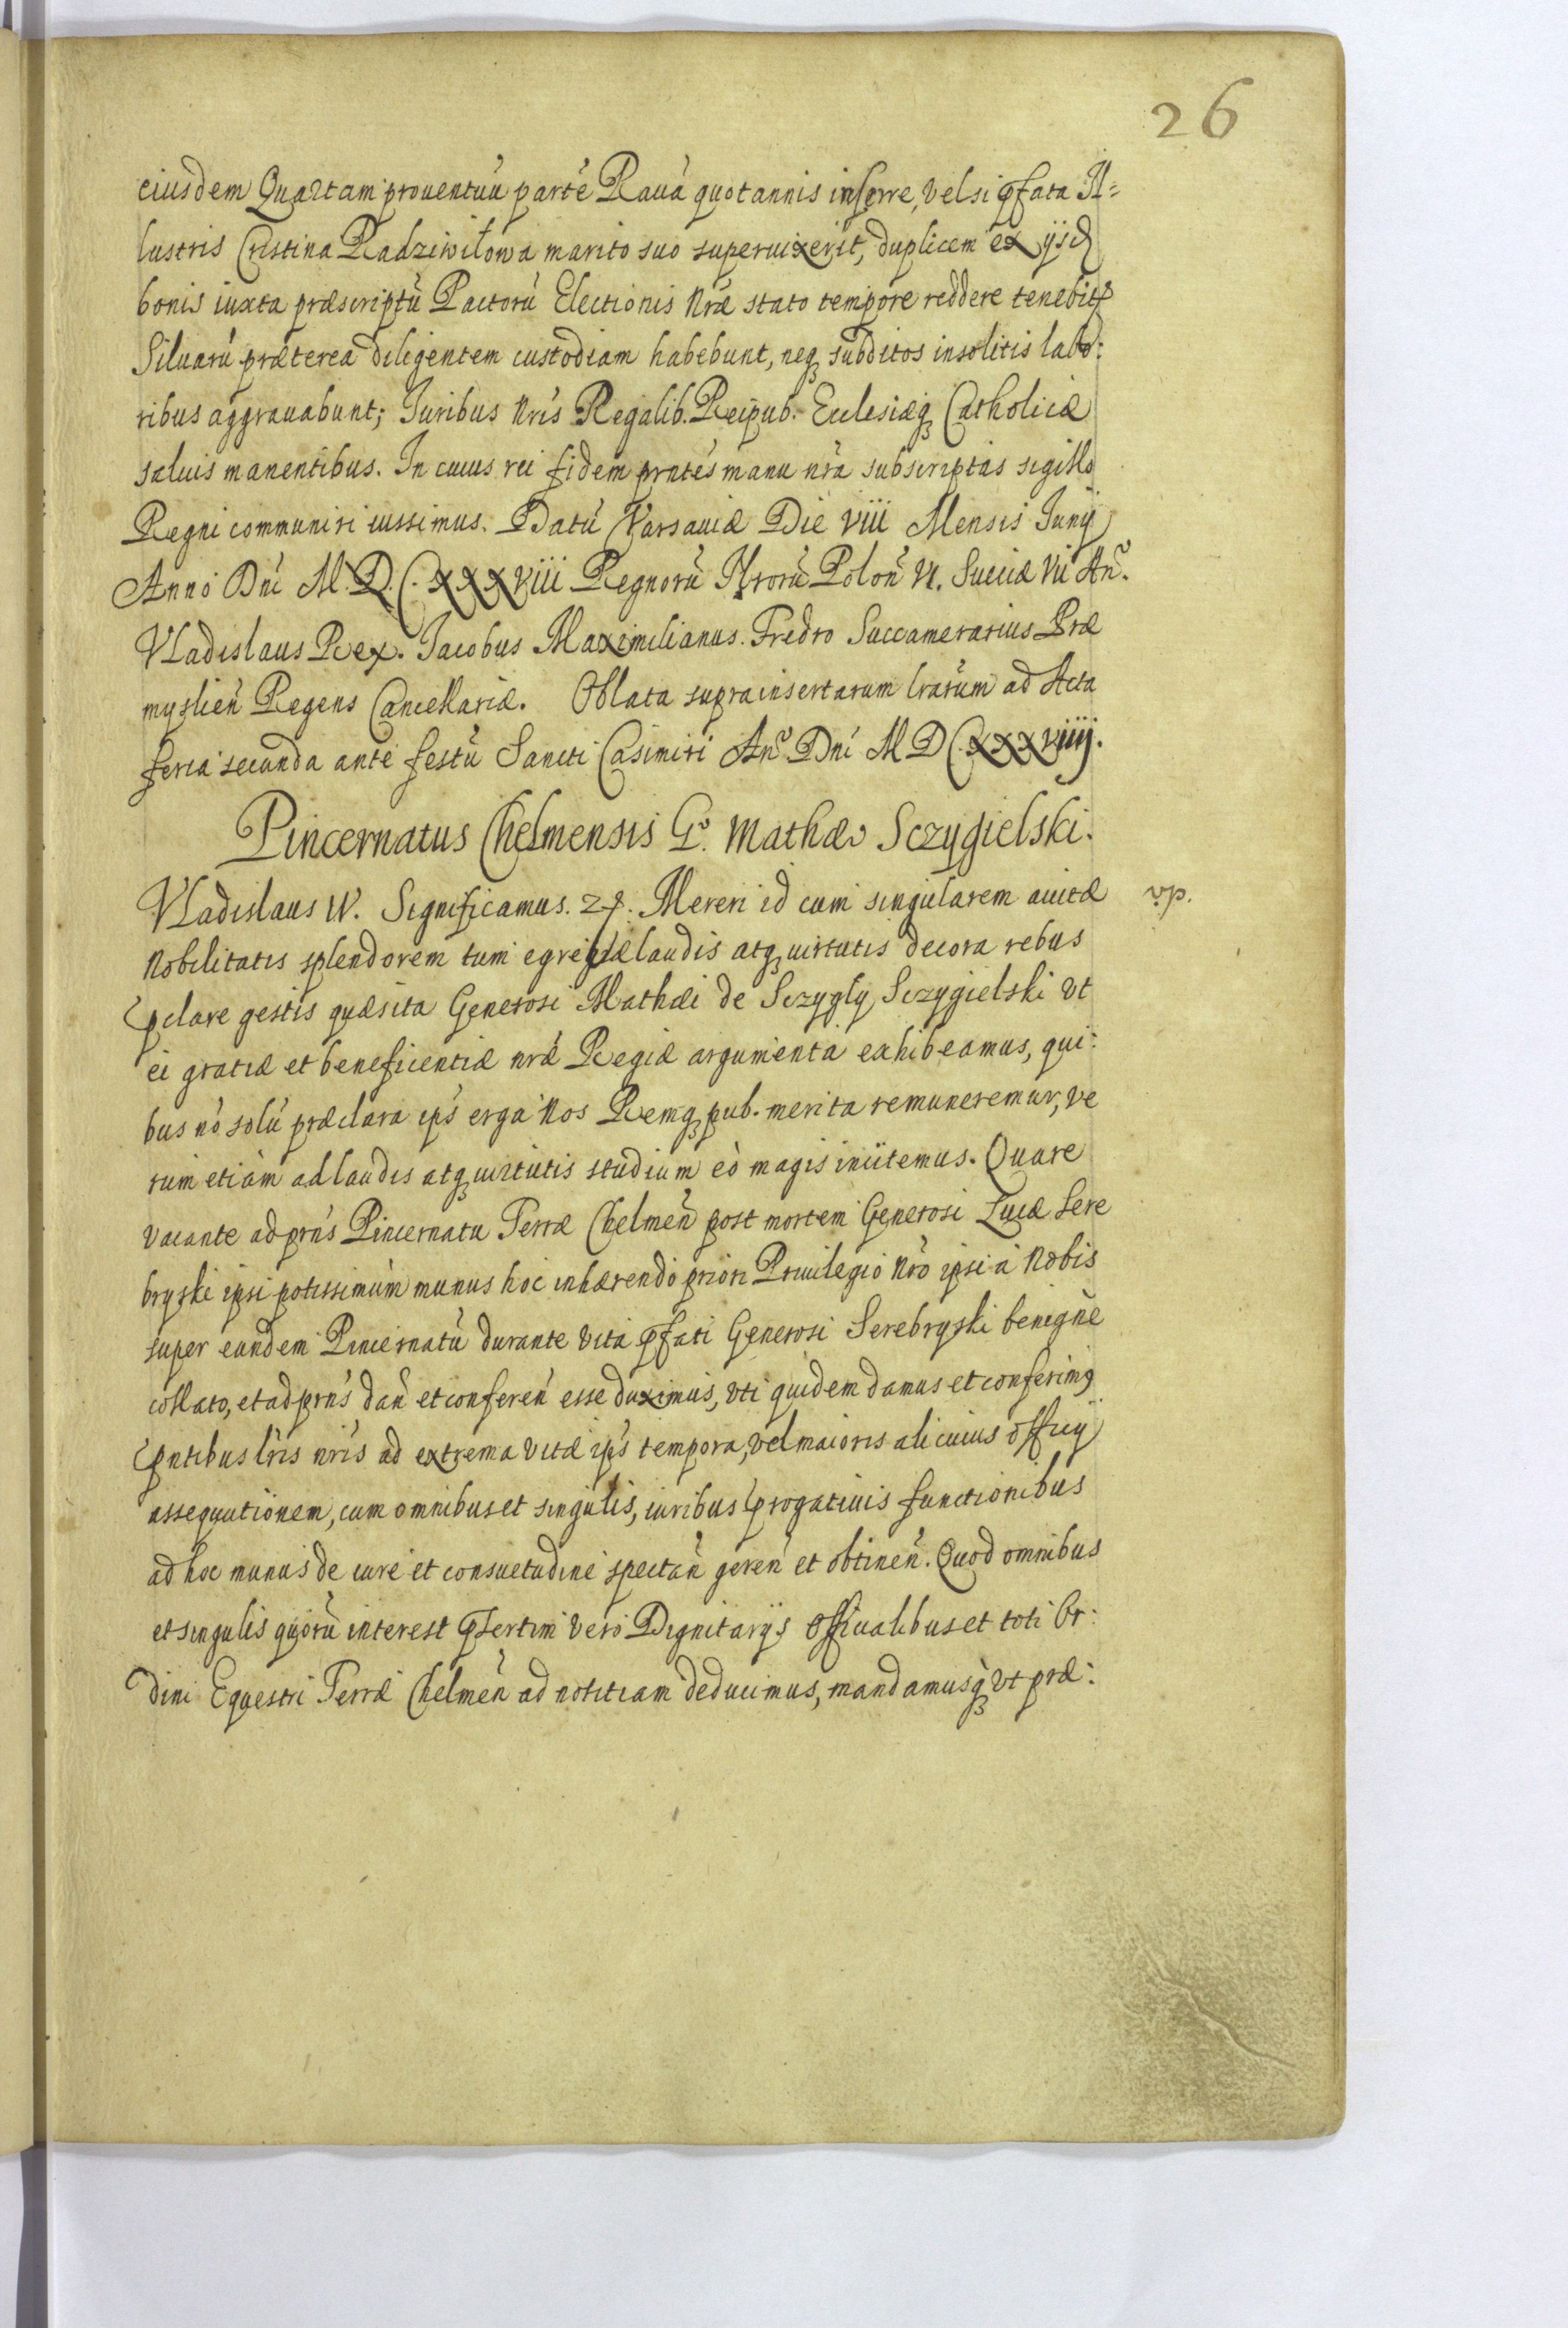 26
eiusdem Quartam prouentuũ partẽ Rauã quotannis inferre, vel si pfata Il=
lustris Cristina Radziwiłowa marito suo superuixerit, duplicem ex ijsd
bonis iuxta præscriptũ Pactorũ Electionis Nræ stato tempore reddere tenebitr
Siluarũ præterea diligentem custodiam habebunt, neq subditos insolitis labo:
ribus aggrauabunt; Iuribus Nris Regalib. Reipub. Ecclesiæq Catholicæ
saluis manentibus. In cuius rei fidem prntes manu nra subscriptas sigillo
Regni communiri iussimus. Datũ Varsauiæ Die viii Mensis Iunij
Anno Dni M.D.C.XXXviii Regnorũ Nrorũ Poloñ VI. Sueciæ Vii Añ.
Vladislaus Rex. Iacobus Maximilianus Fredro Succamerarius Præ
myslieñ Regens Cancellariæ. Oblata suprainsertarum lrarum ad Acta
feria secunda ante festũ Sancti Casimiri Anº Dni M D C.XXXviiij.
Pincernatus Chelmensis Gº. Mathæo Sczygielski.
Vladislaus IV. Significamus. Mereri id cum singularem auitæ
vp.
Nobilitatis splendorem tum egregiæ laudis atq uirtutis decora rebus
pclare gestis quæsita Generosi Mathæi de Sczygly Sczygielski vt
ei gratiæ et beneficentiæ nræ Regiæ argumenta exhibeamus, qui:
bus nõ solũ præclara ips erga Nos Remq pub. merita remuneremur, ve
rum etiam ad laudis atq uirtutis studium eò magis inuitemus. Quare
vacante ad prns Pincernatu Terræ Chelmeñ post mortem Generosi Lucæ Sere
bryski ipsi potissimùm munus hoc inhærendo priori Priuilegio Nro ipsi à Nobis
super eundem Pincernatũ durante vita pfati Generosi Serebryski benignè
collato, et ad prns dañ et confereñ esse duximus, vti quidem damus et conferimq
pntibus lris nris ad extrema vitæ ips tempora, vel maioris alicuius officij
assequutionem, cum omnibus et singulis, iuribus progatiuis functionibus
ad hoc munus de iure et consuetudine spectañ gereñ et obtineñ. Quod omnibus
et singulis quorũ interest psertim vero Dignitarijs Officialibus et toti Or:
dini Equestri Terræ Chelmeñ ad notitiam deducimus, mandamusq vt præ: